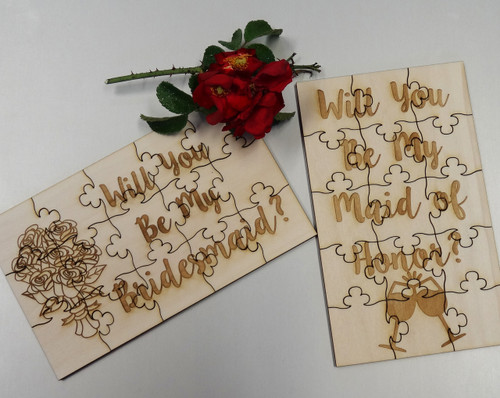 Will You
Be My
Bridesmaid?
Will You
Be My
Maid of
Honor?